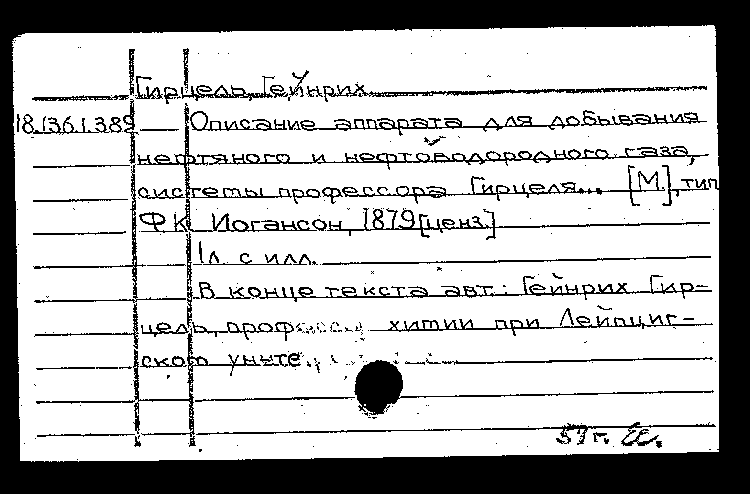 Гирцель, Гейнрих
18.136.1.389 Описание аппарата для добывания
нефтяного и нефтоводородного газа,
системы профессора Гирцеля... [М.], тип
Ф К Иогансон, 1879 [ценз.]
1л. с илл.
В конце текста авт.: Гейнрих Гир-
цель, профессор химии при Лейпциг-
ского
59 г.